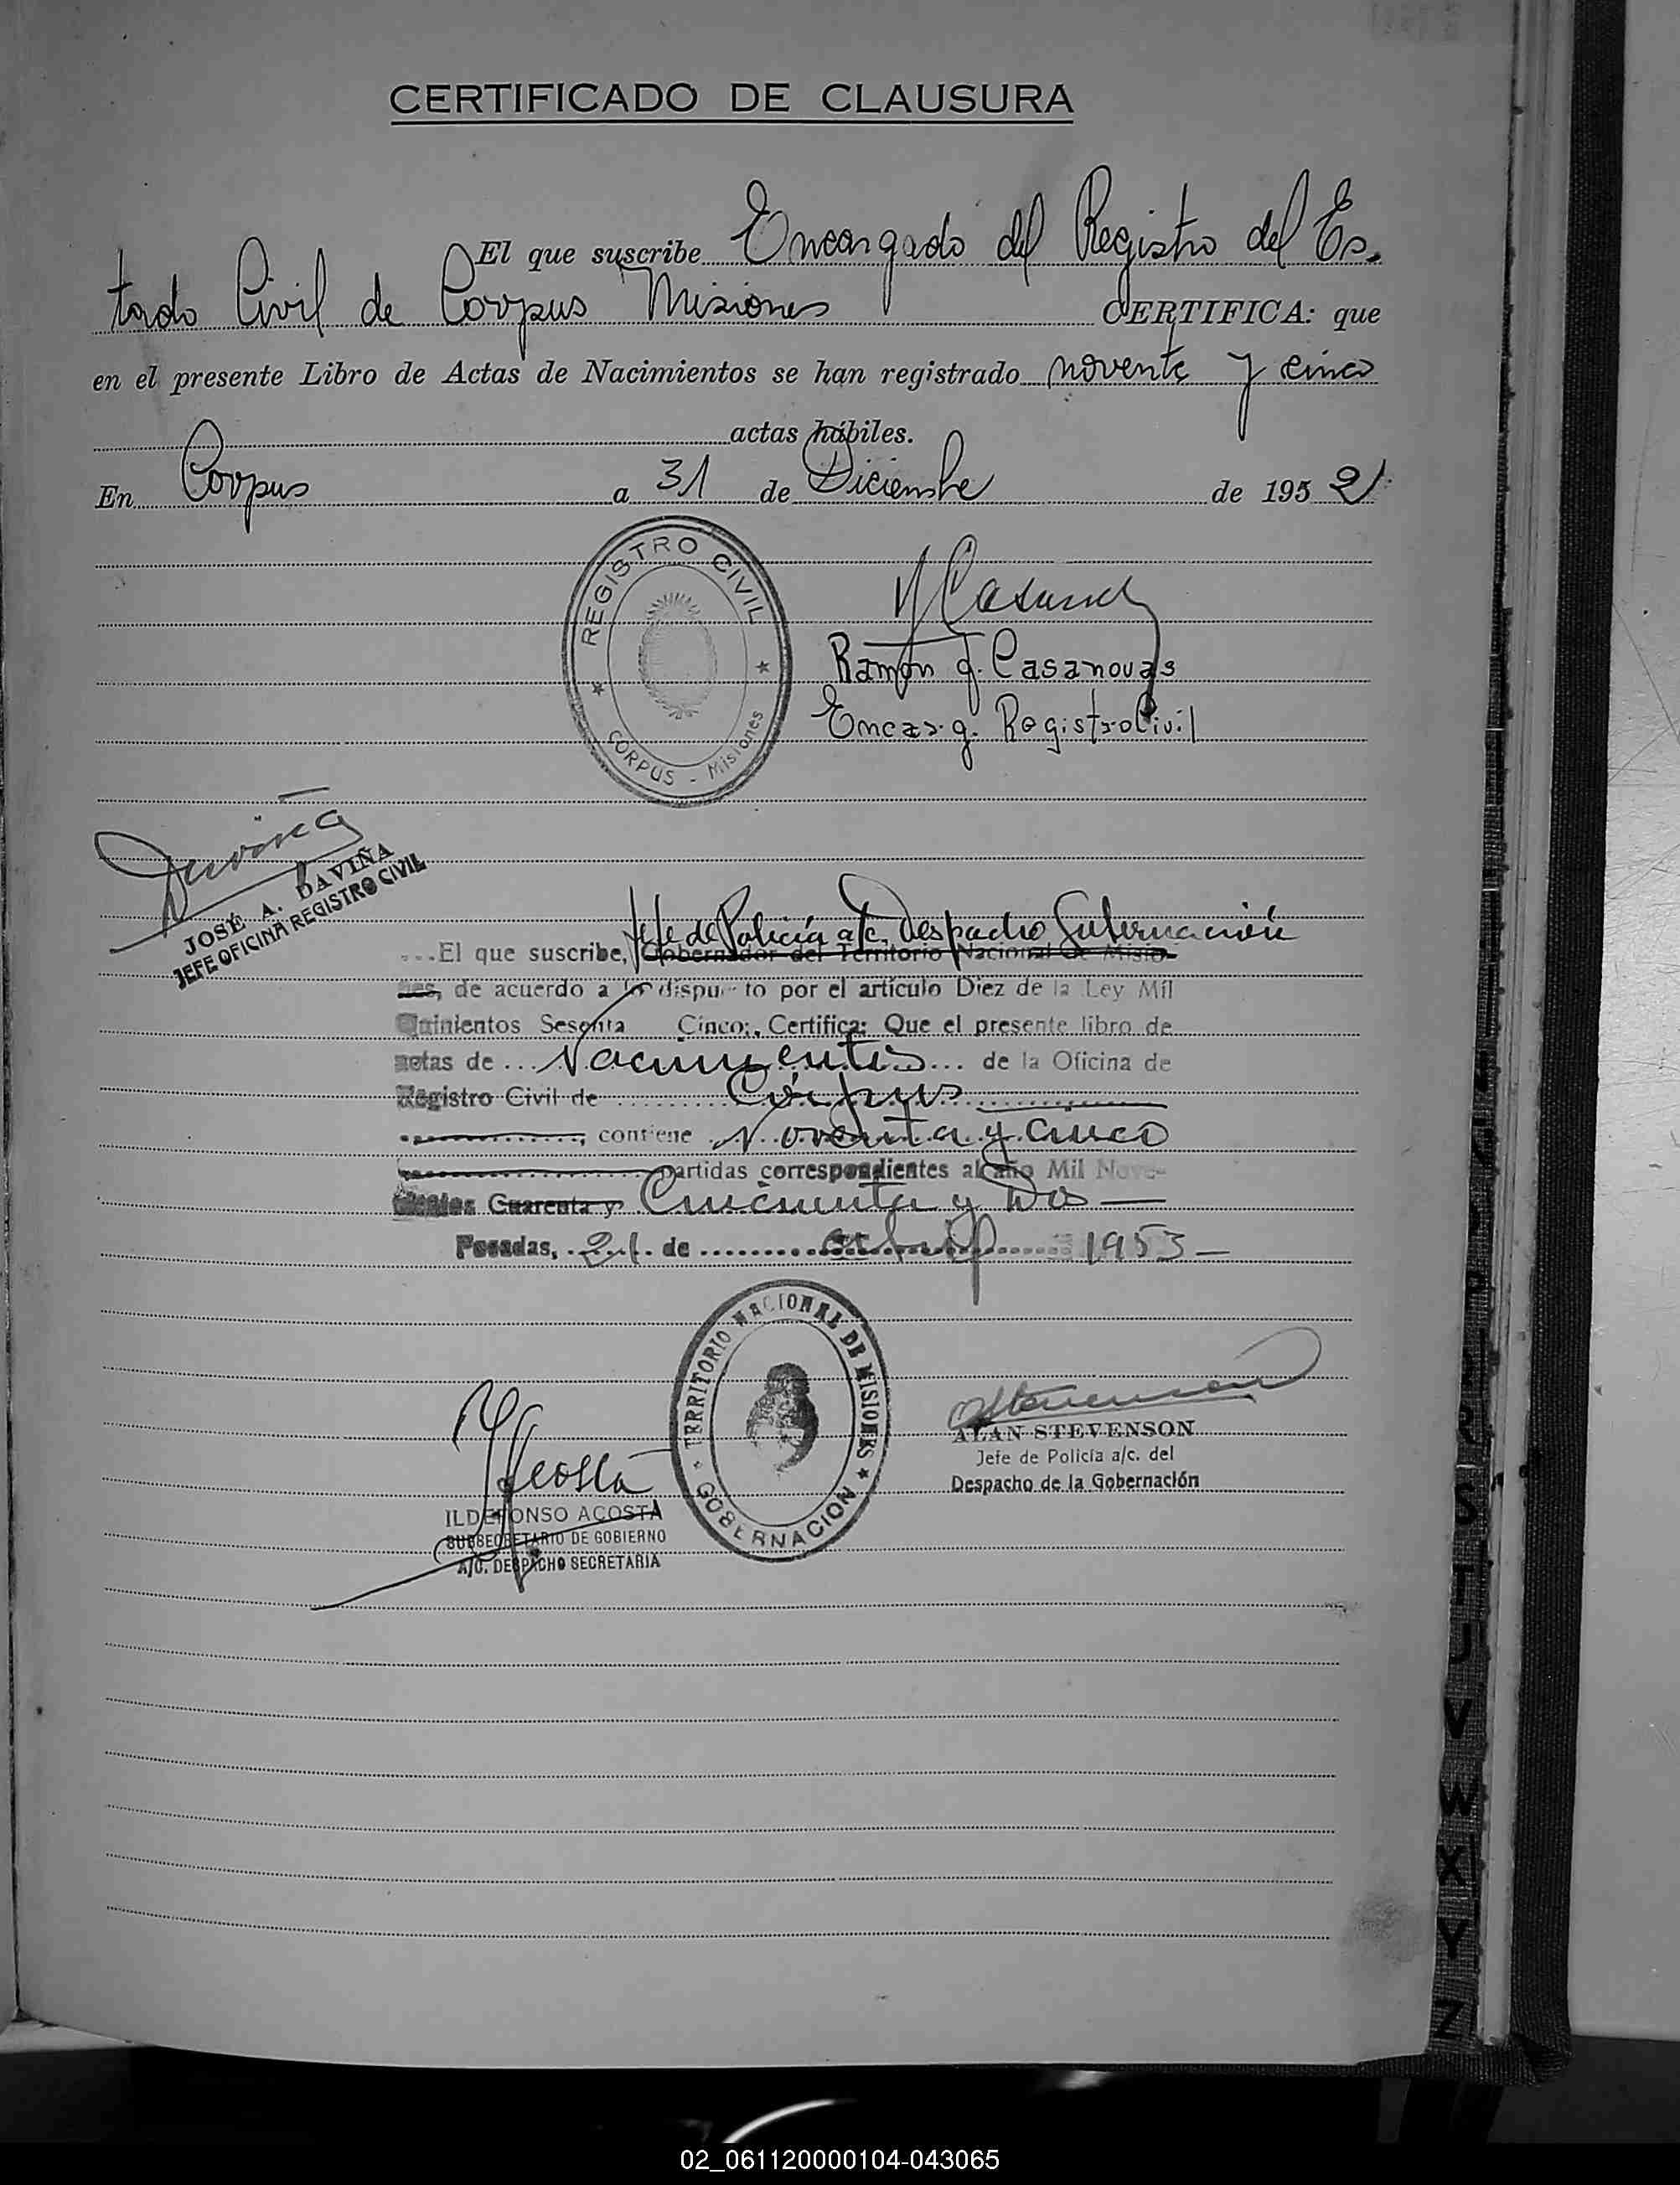 CERTIFICADO DE CLAUSURA
El que suscribe Encargado del Registro del Es-
tado Civil de Corpus Misiones CERTIFICA: que
en el presente Libro de Actas de Nacimientos se han registrado noventa y cinco
actas hábiles.
En Corpus a 31 de Diciembre de 1952
REGISTRO CIVIL
CORPUS - Misiones
Ramón J. Casanovas
Encarg. Registro Civil
Daviña
JOSÉ A. DAVIÑA
JEFE OFICINA REGISTRO CIVIL
Jefe de Policía a/c. Despacho Gobernación
...El que suscribe, Gobernador del Territorio Nacional de Misio-
nes, de acuerdo a lo dispuesto por el artículo Diez de la Ley Mil
Quinientos Sesenta Cinco:, Certifica: Que el presente libro de
actas de ... Nacimientos ... de la Oficina de
Registro Civil de ........ Corpus
, contiene Noventa y cinco
partidas correspondientes al año Mil Nove-
cientos Cuarenta y Cincuenta y Dos —
Posadas, 21 de abril 1953 —
TERRITORIO NACIONAL DE MISIONES
GOBERNACION
Acosta
ILDEFONSO ACOSTA
SUBSECRETARIO DE GOBIERNO
A/C. DESPACHO SECRETARIA
AStevenson
ALAN STEVENSON
Jefe de Policía a/c. del
Despacho de la Gobernación
S
T
U
V
W
X
Y
Z
02_061120000104-043065